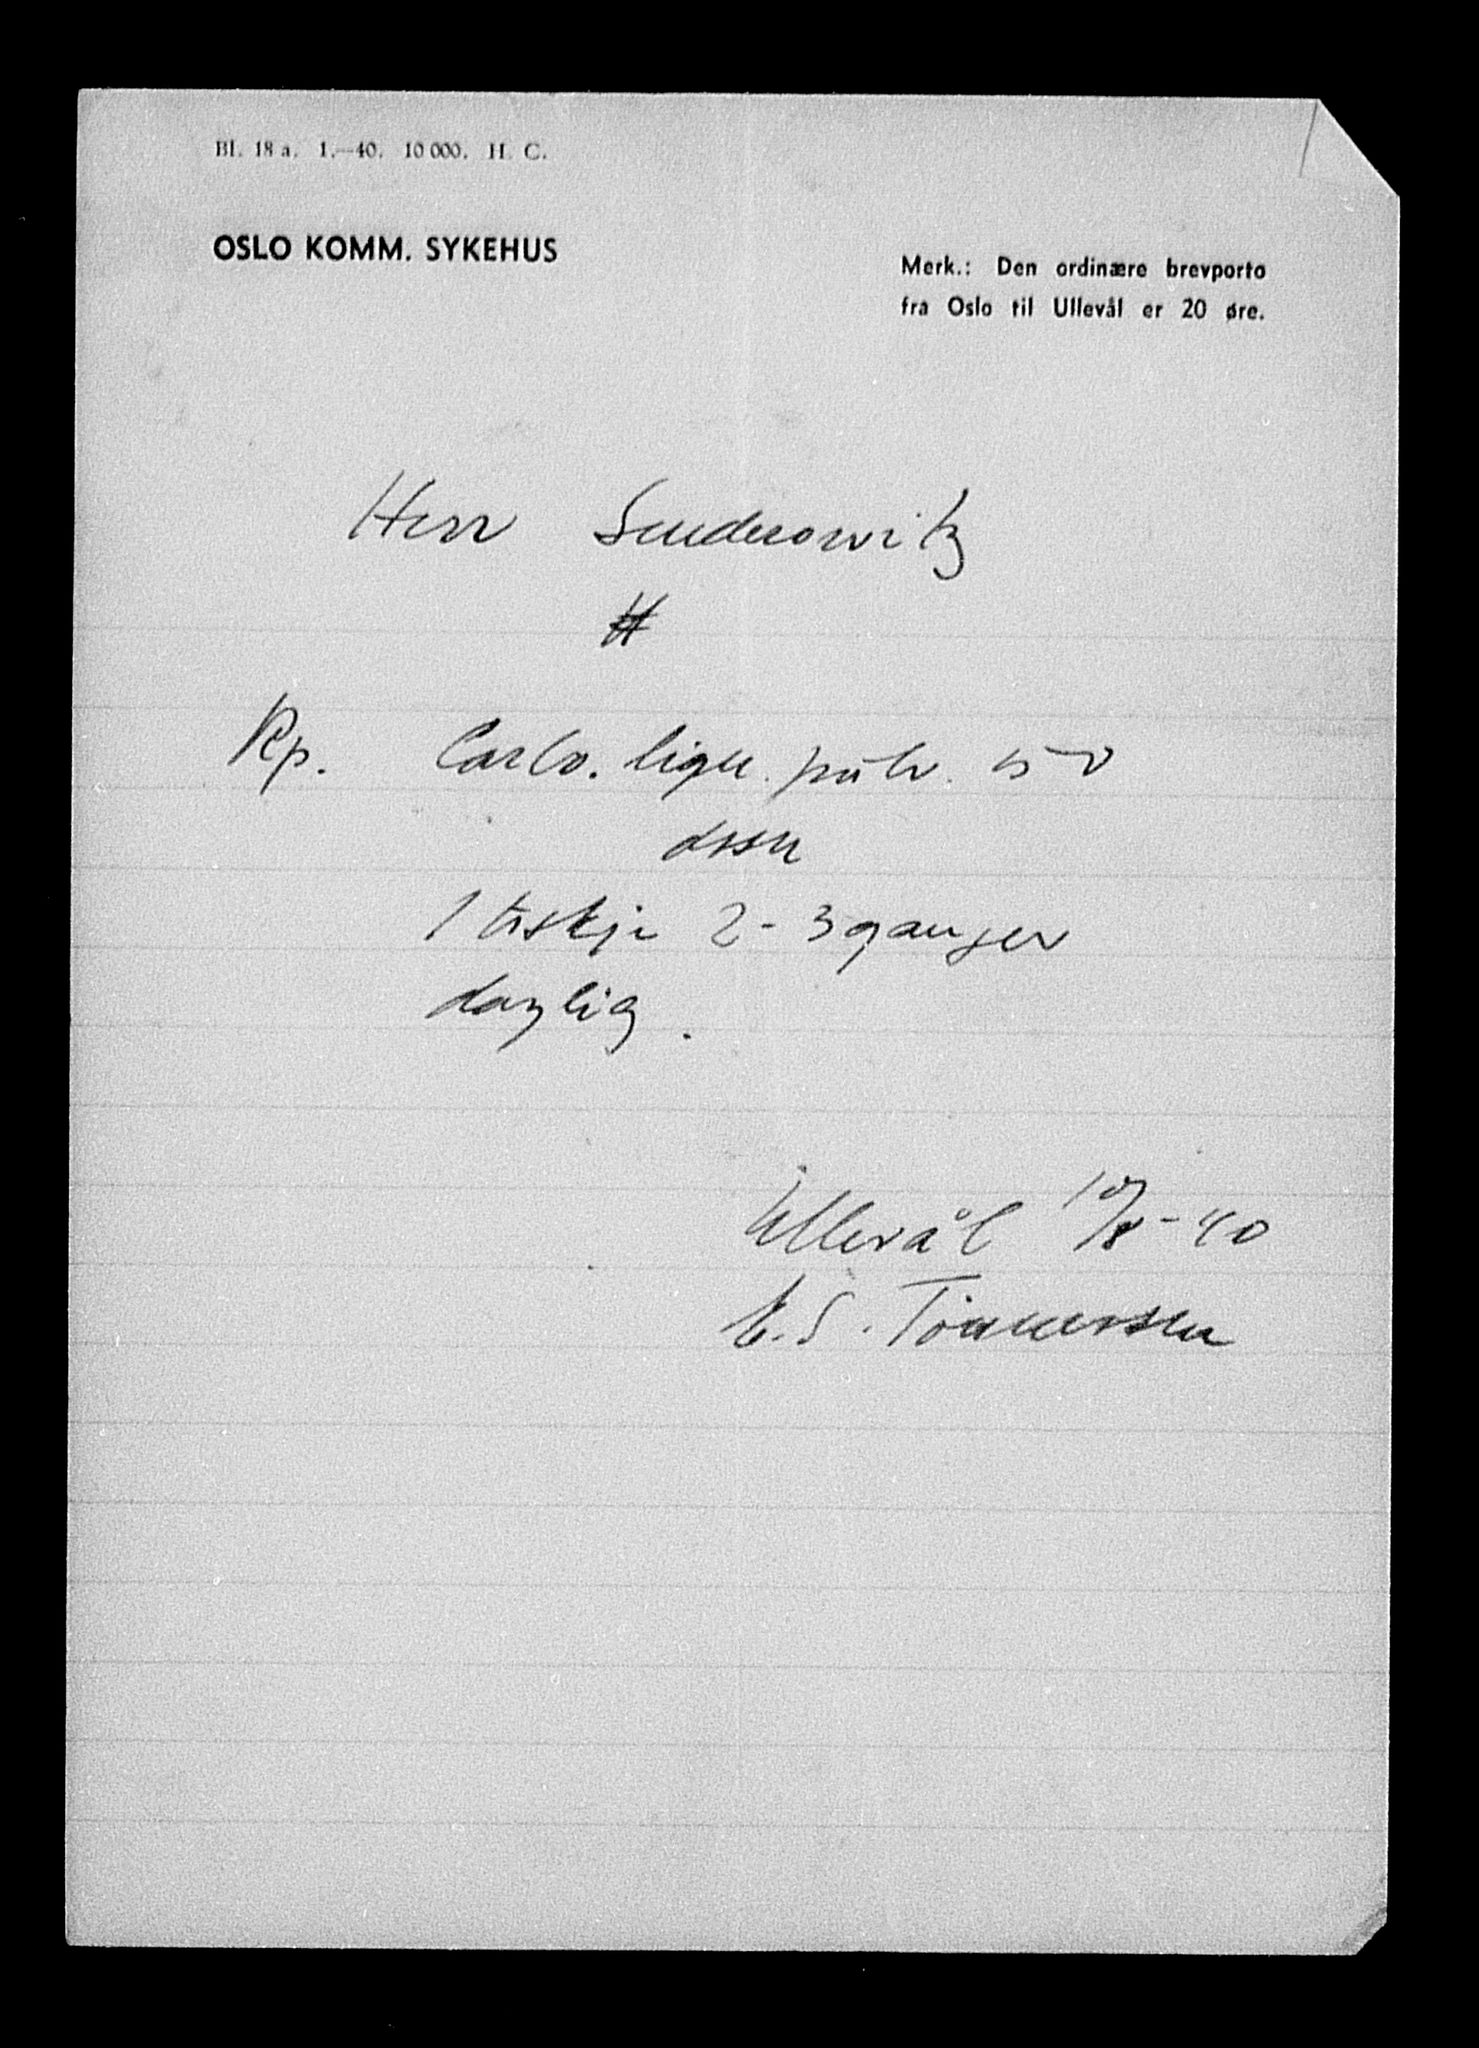 Bl. 18 a. 1.—40. 10 000. H. C.
OSLO KOMM. SYKEHUS
Merk.: Den ordinære brevporto
fra Oslo til Ullevål er 20 øre.
Herr Senderowitz
Rp. Carbo. lign. pulv. 50
dssn
1 teskje 2-3 ganger
daglig.
Ullevål 10/8-40
E.S. Tønnessen